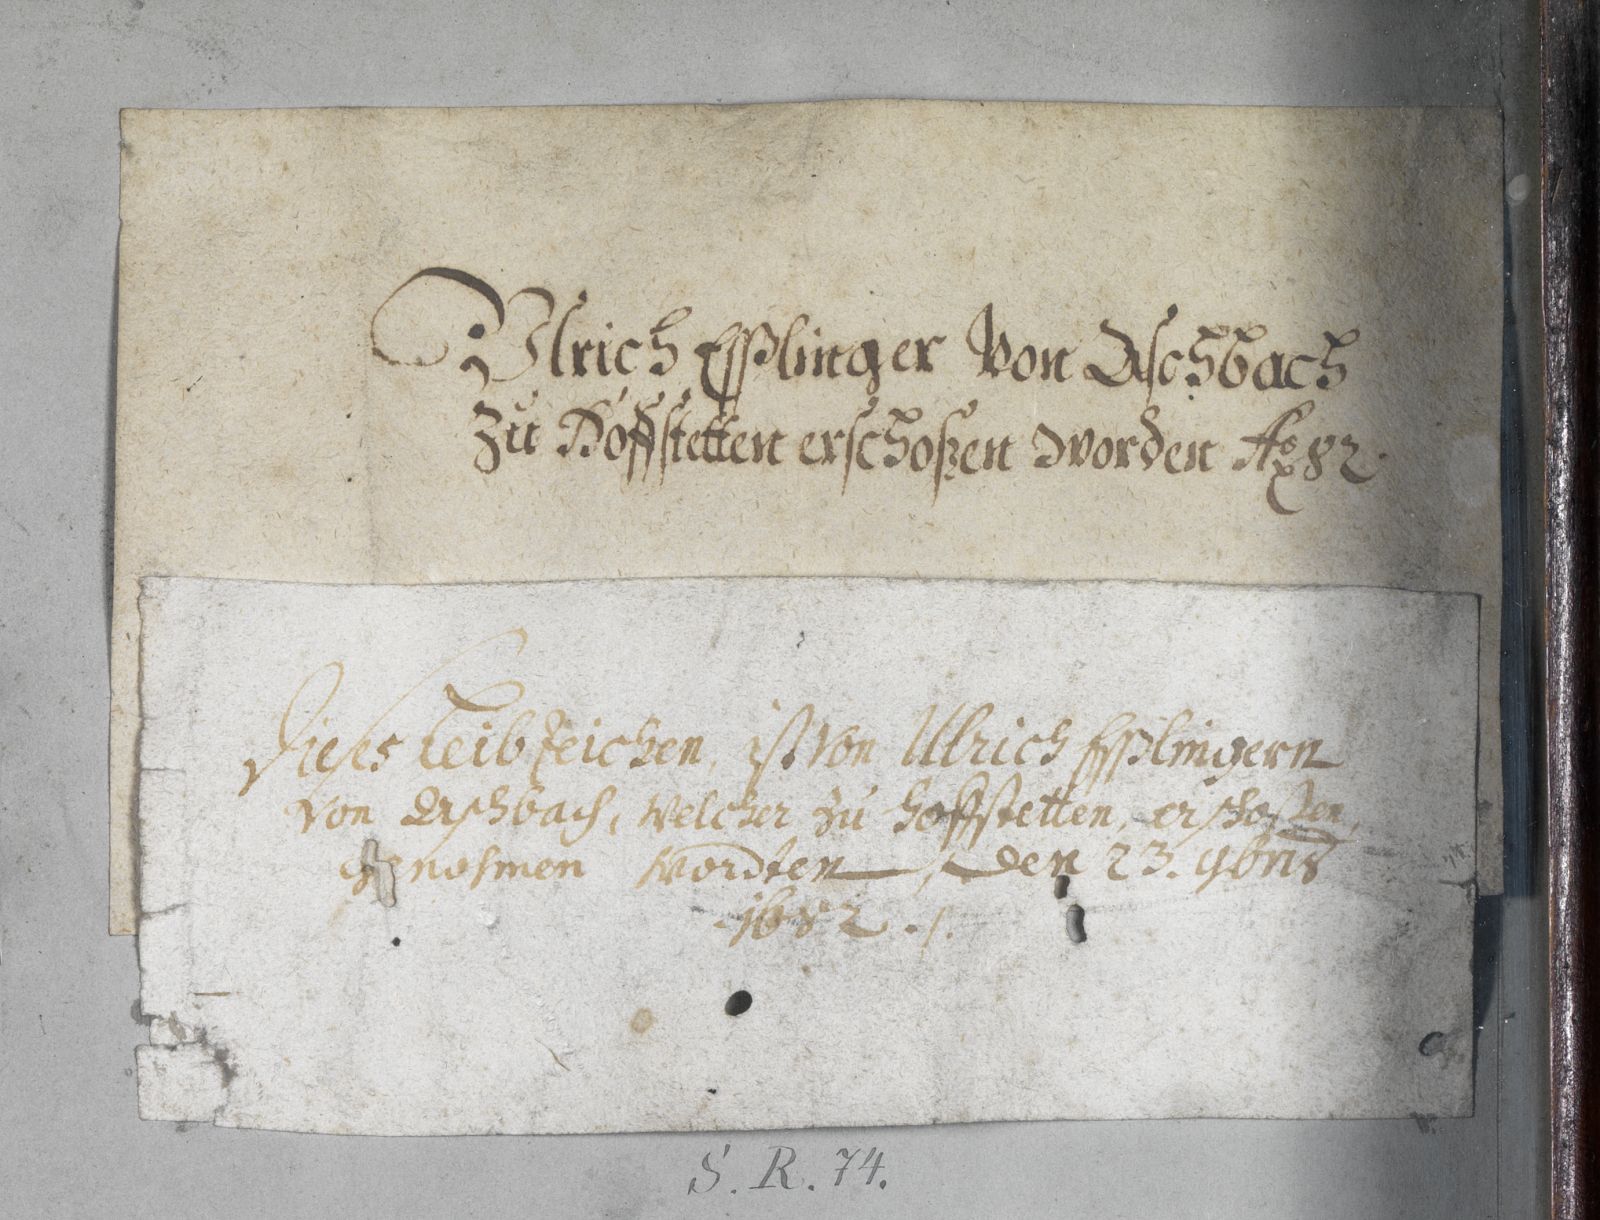 Vlrich Esslinger Von Aschbach
Zu Hoffstetten erschoszen worden Ao 82.
Dieses Leibzeichen, ist von Ulrich Esslingern
von Aschbach, welcher zu Hoffstetten, erschossen,
genohmen wordten, den 23. 9bris
1682.
S. R. 74.